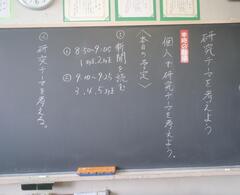 研究テーマを考えよう
個人で研究テーマを考えよう。
〈本日の予定〉
① 新聞を読む
① 8:50~9:05
② 9:10~9:25
② 研究テーマを考える。